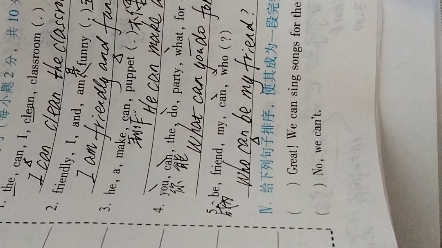 (每小题2分，共10
1. the, can, I, clean, classroom (.)
I can clean the classroom
2. friendly, I, and, am, funny (.)
I am friendly and fun
3. he, a, make, can, puppet (.)
He can make a
4. you, can, the, do, party, what, for
你 能
What can you do for
5. be, friend, my, can, who (?)
Who can be my friend?
Ⅳ. 给下列句子排序，使其成为一段完
( ) Great! We can sing songs for the
( ) No, we can't.